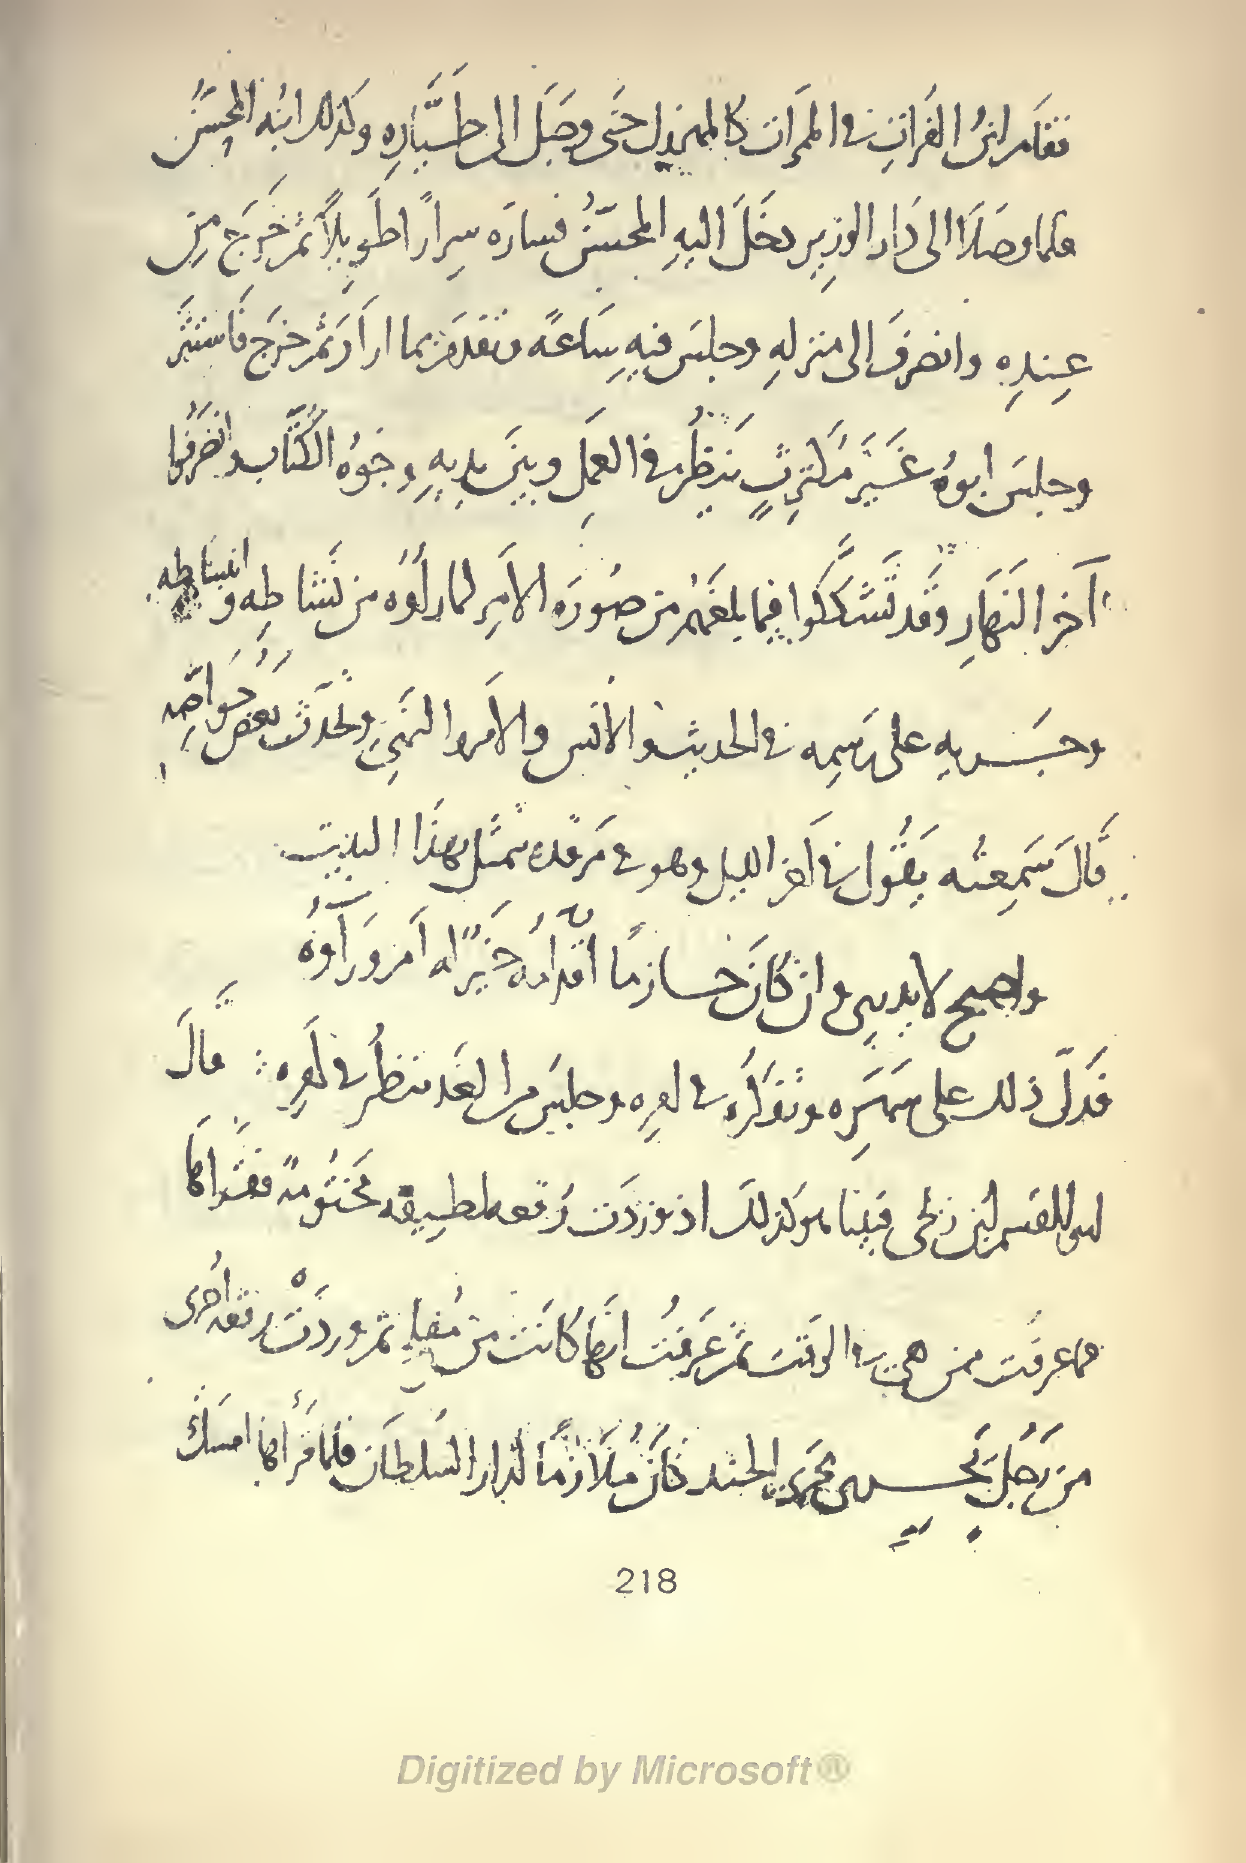 فقام ابنُ الفَراتِ في الممرات كالمهزول حتَّى وصَلَ الى طيَّارِهِ وكذلك ابنُه المحسّنُ
فلما وصَلَا الى دَار الوزِيرِ دخَلَ اليهِ المحسّنُ فسارّه سِراراً طَويلاً ثم خَرَجَ مِن
عِندِهِ وانصرفَ الى منزلهِ وجلسَ فيهِ سَاعةً وتقدَّمَ بما ارَادَ ثم خرَجَ فَاستَتَرَ
وجلسَ ابوهُ غَيرَ مُكترِثٍ ينظُر في العمَلِ وبينَ يديهِ وجُوهُ الكُتَّاب وانصَرَفُوا
آخرَ النَهَارِ وقَد تَشَكَّكُوا فيما بلغَهُم من صُورَه الامرِ لما رَأوُه من نَشاطِهِ وانبساطه
وجَرِيهِ على رَسمِه في الحديث والانس والامر والنَهىِ وتحدَّث بعض خَوَاصِّه
قَالَ سَمِعتُه يقُول في آخر الليل وهو في مرقده يتمثَّل بهذَا البيت
واصبح لا يدرِي وان كَانَ حازمًا اقدّامُهُ خَيرٌ له اَم وَرَآوُهُ
فَدَلّ ذلك على سَهَرِه وتفكُّرِه في امرِه وجلسَ من الغَد ينظُر في امرِه ؞ قَالَ
ابو القسم بن زنجى فبينا هو كذلكَ اذ وردَت رُقعه لطيفه مختُومةً فقَرأها
فما عرفت ممن هي في الوقت ثم عَرَفتُ انّها كانَت من مُفلحٍ ثم وردَتْ رقعه اُخرى
من رَجُلٍ يجرى مجرى الجند كَانَ مُلَازمًا لدار السُلطان فلما قَرأها امسَكَ
218
Digitized by Microsoft®